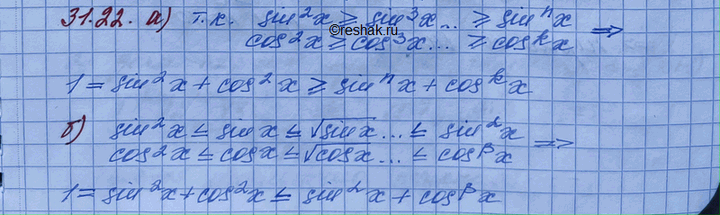 31.22. а) т.к. sin²x ≥ sin³x... ≥ sinⁿx
©reshak.ru
cos²x ≥ cos³x... ≥ cosᵏx ⇒
1 = sin²x + cos²x ≥ sinⁿx + cosᵏx
б) sin²x ≤ sin x ≤ √sin x ... ≤ sin^αx
cos²x ≤ cos x ≤ √cos x ... ≤ cos^βx ⇒
1 = sin²x + cos²x ≤ sin^αx + cos^βx